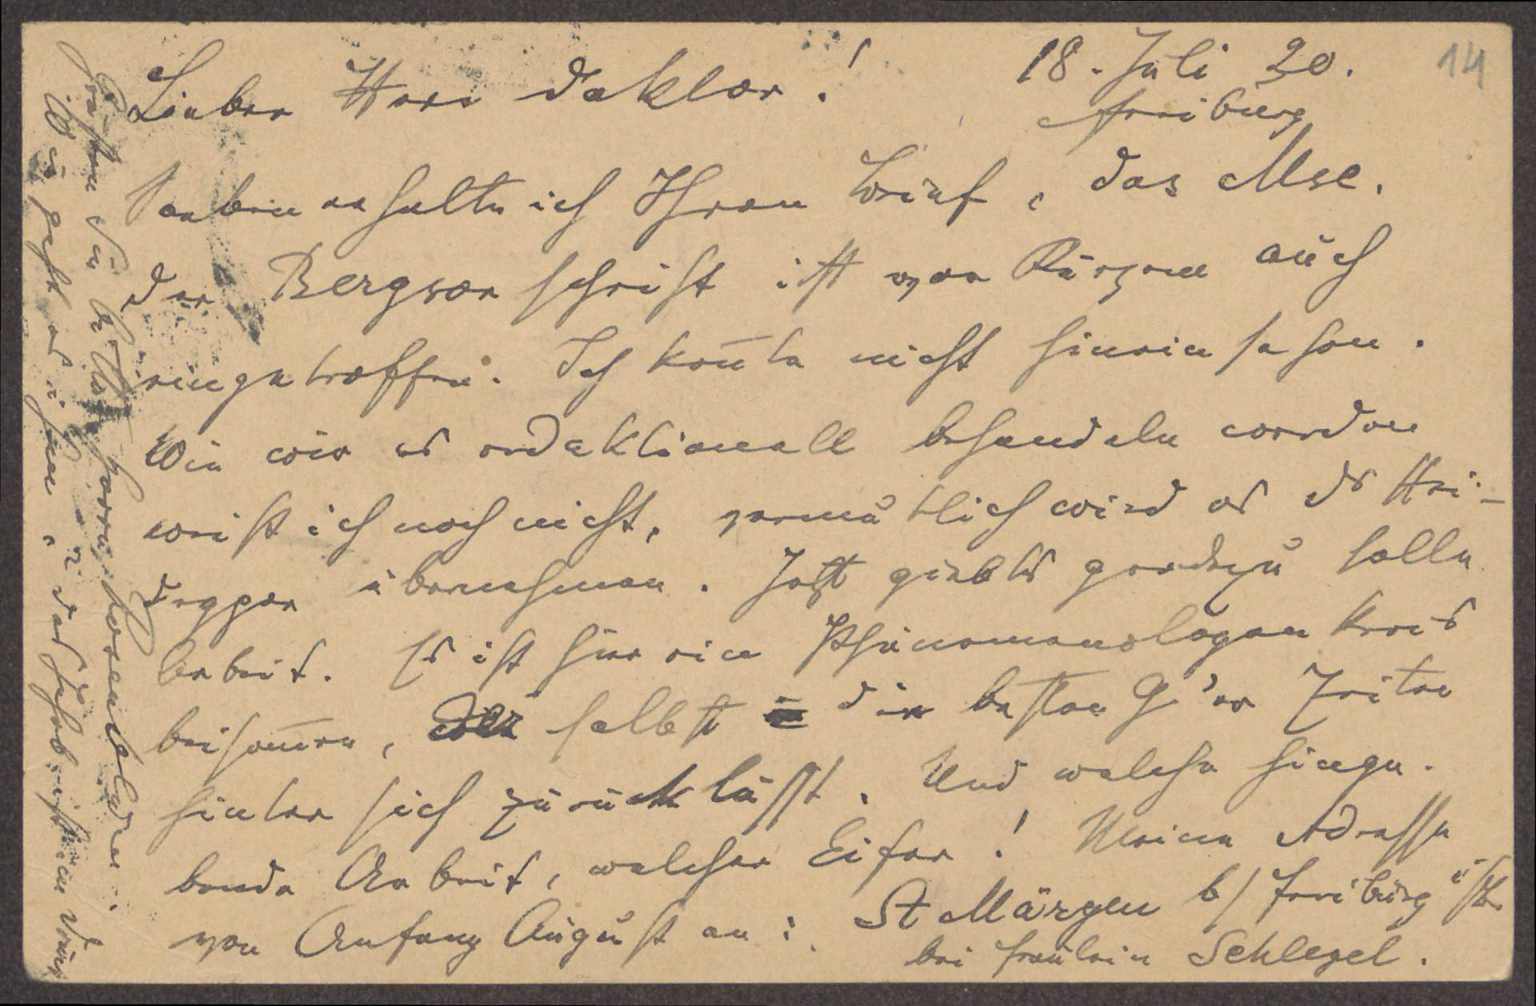 14
18. Juli 20.
Freiburg
Lieber Herr Doktor!
Soeben erhalte ich Ihren Brief, das Msc.
der Bergson schrift ist vor Kurzem auch
eingetroffen. Ich kon̄te nicht hineinsehen.
Wie wir es redaktionell behandeln werden
weiß ich noch nicht, vermutlich wird es Dr Hei-
degger übernehmen. Jetzt giebt's geradezu tolle
Arbeit. Es ist hier ein Phänomenologen kreis
beisam̄en, der selbst die besten G'er Zeiten
hinter sich zurück läßt. Und welche hinge-
bende Arbeit, welcher Eifer! Meine Adresse
von Anfang August an: St Märgen b/ Freiburg
bei Fräulein Schlegel.
Grüßen Sie bitte Herrn Rosenblum.
Wie geht es ihm,